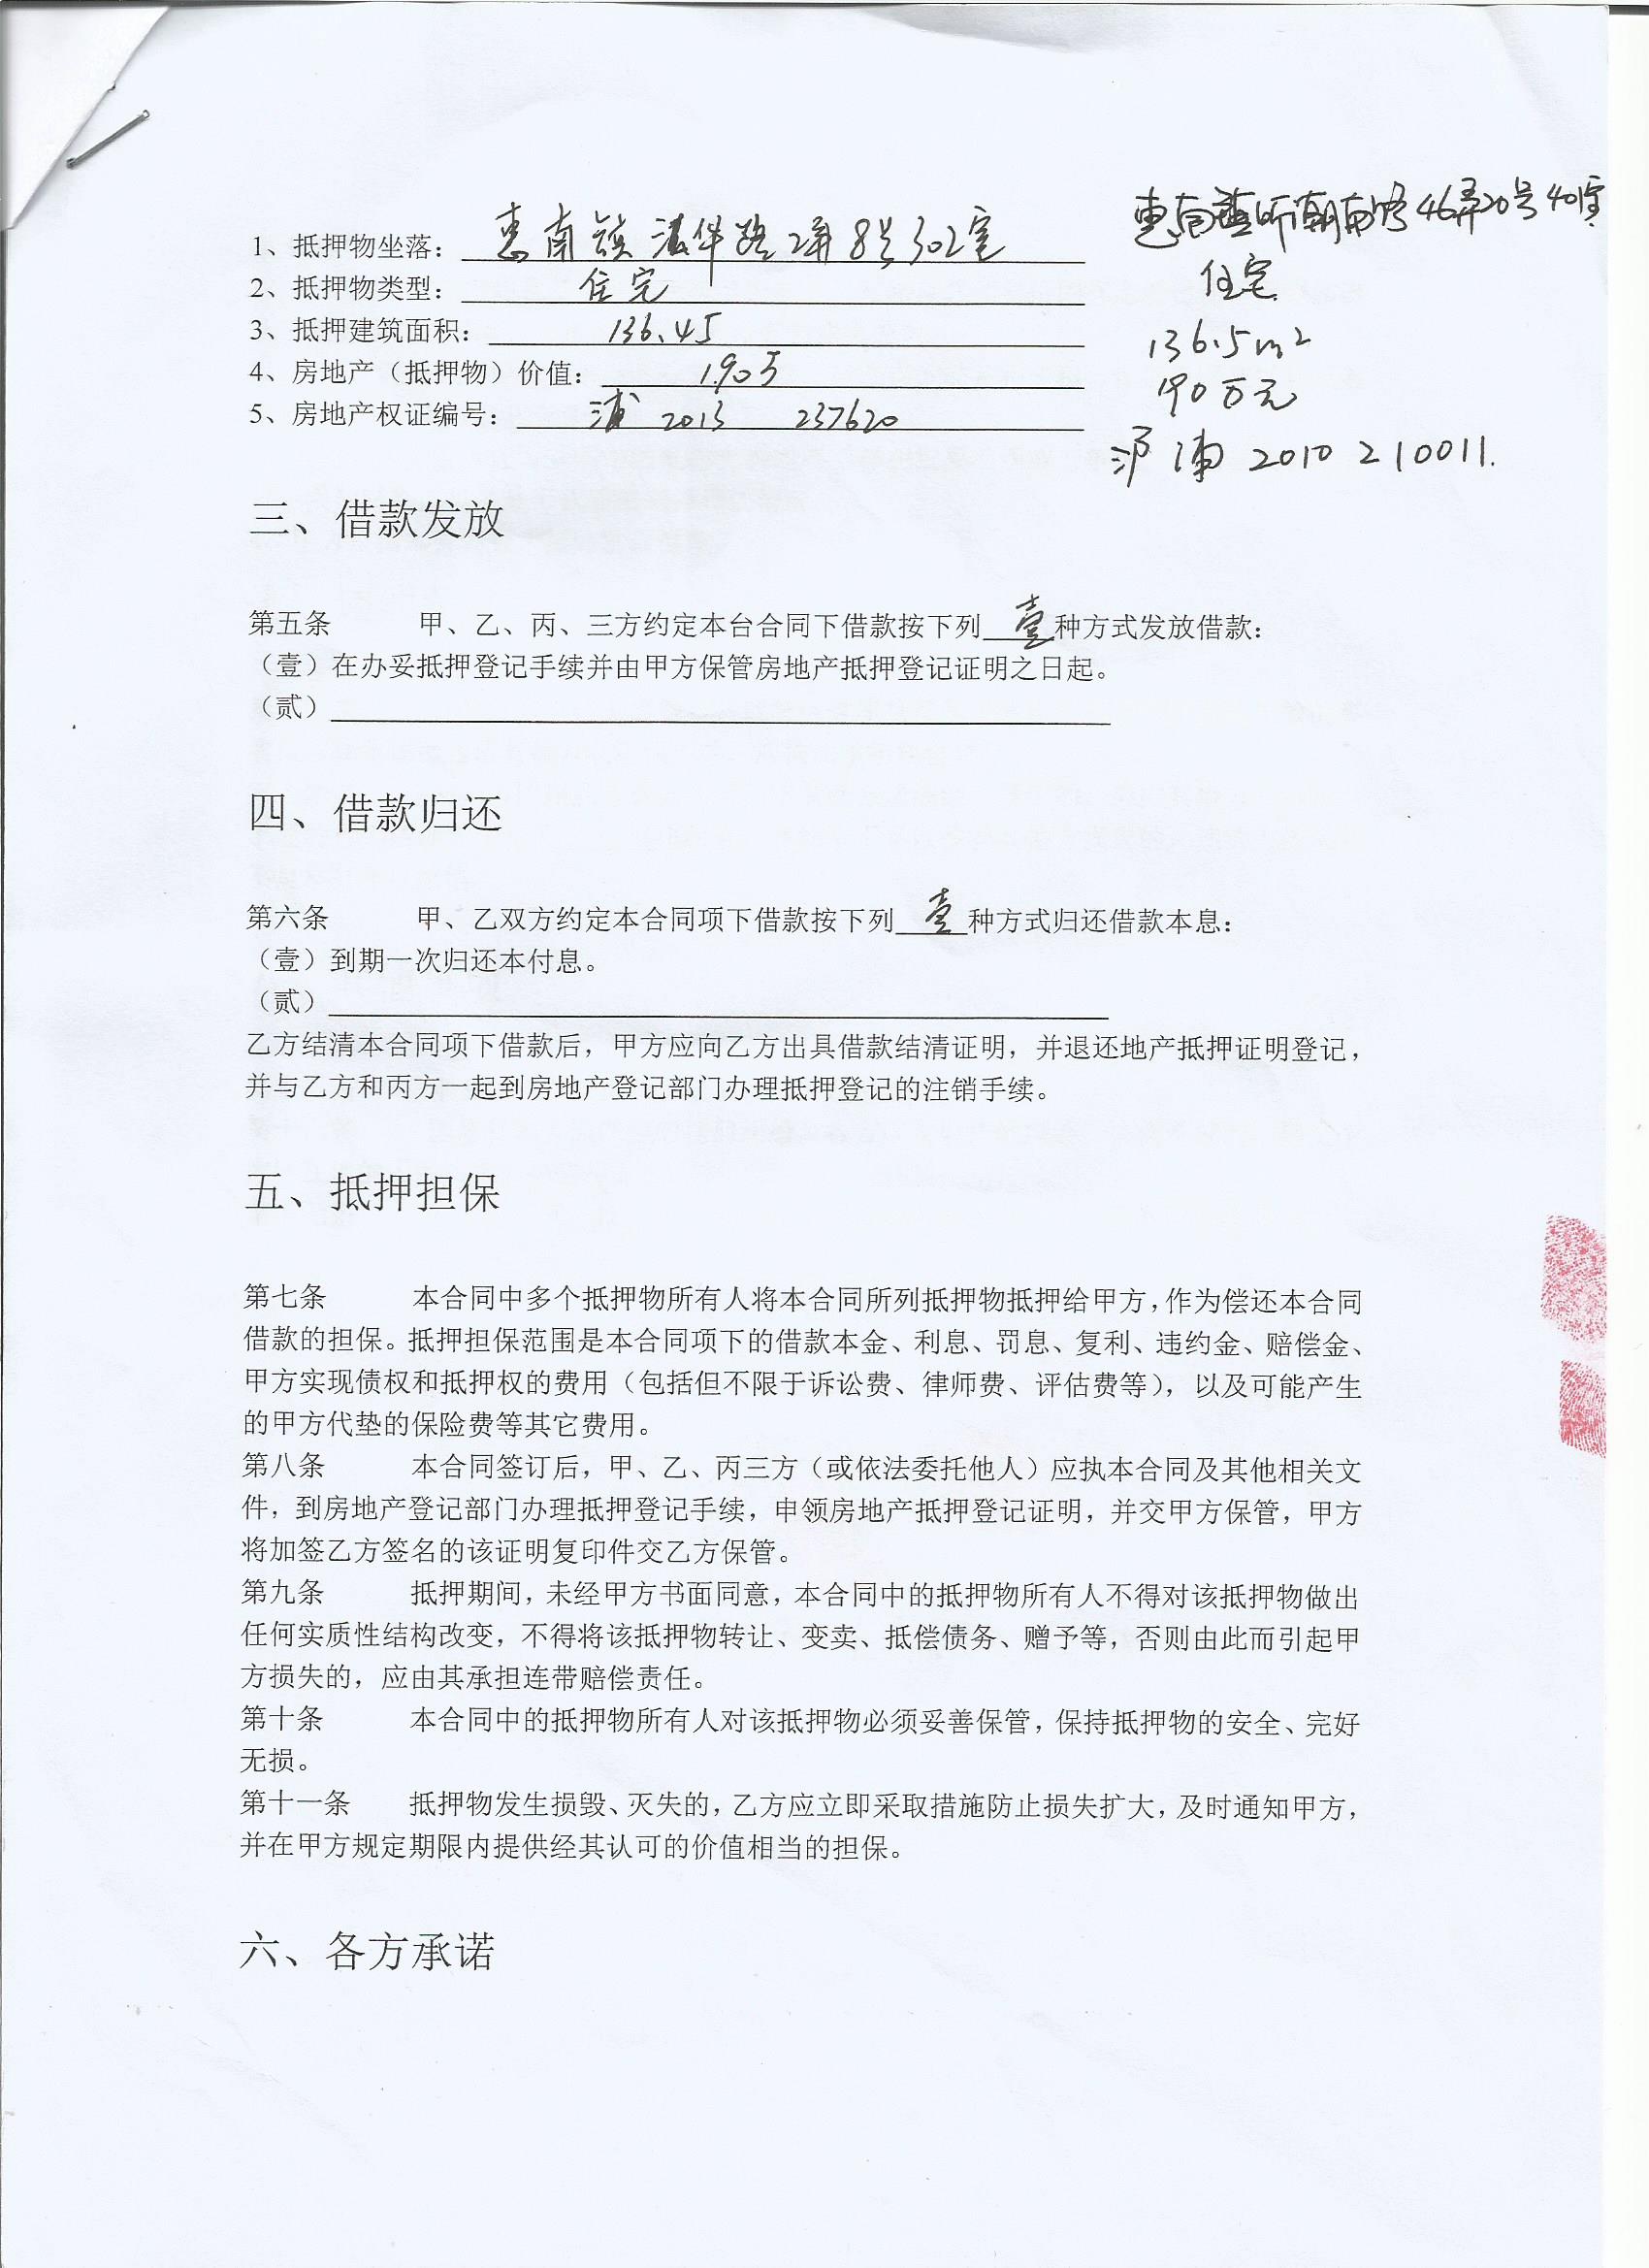 惠南镇 46弄20号401室
住宅
136.5m2
190万元
沪浦 2010 210011.
1、抵押物坐落：惠南镇 路2弄8号302室
2、抵押物类型：住宅
3、抵押建筑面积：136.45
4、房地产（抵押物）价值：190万
5、房地产权证编号：浦 2013 237620
三、借款发放
第五条 甲、乙、丙、三方约定本台合同下借款按下列壹种方式发放借款：
（壹）在办妥抵押登记手续并由甲方保管房地产抵押登记证明之日起。
（贰）
四、借款归还
第六条 甲、乙双方约定本合同项下借款按下列壹种方式归还借款本息：
（壹）到期一次归还本付息。
（贰）
乙方结清本合同项下借款后，甲方应向乙方出具借款结清证明，并退还地产抵押证明登记，
并与乙方和丙方一起到房地产登记部门办理抵押登记的注销手续。
五、抵押担保
第七条 本合同中多个抵押物所有人将本合同所列抵押物抵押给甲方，作为偿还本合同
借款的担保。抵押担保范围是本合同项下的借款本金、利息、罚息、复利、违约金、赔偿金、
甲方实现债权和抵押权的费用（包括但不限于诉讼费、律师费、评估费等），以及可能产生
的甲方代垫的保险费等其它费用。
第八条 本合同签订后，甲、乙、丙三方（或依法委托他人）应执本合同及其他相关文
件，到房地产登记部门办理抵押登记手续，申领房地产抵押登记证明，并交甲方保管，甲方
将加签乙方签名的该证明复印件交乙方保管。
第九条 抵押期间，未经甲方书面同意，本合同中的抵押物所有人不得对该抵押物做出
任何实质性结构改变，不得将该抵押物转让、变卖、抵偿债务、赠予等，否则由此而引起甲
方损失的，应由其承担连带赔偿责任。
第十条 本合同中的抵押物所有人对该抵押物必须妥善保管，保持抵押物的安全、完好
无损。
第十一条 抵押物发生损毁、灭失的，乙方应立即采取措施防止损失扩大，及时通知甲方，
并在甲方规定期限内提供经其认可的价值相当的担保。
六、各方承诺